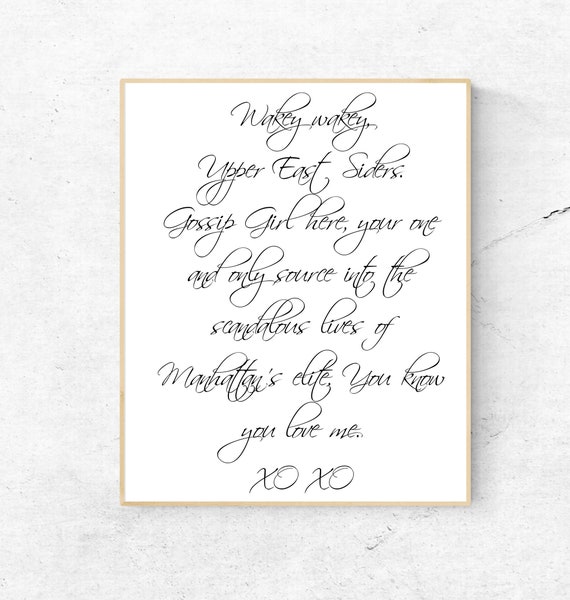 Wakey wakey,
Upper East Siders.
Gossip Girl here, your one
and only source into the
scandalous lives of
Manhattan's elite. You know
you love me.
XO XO